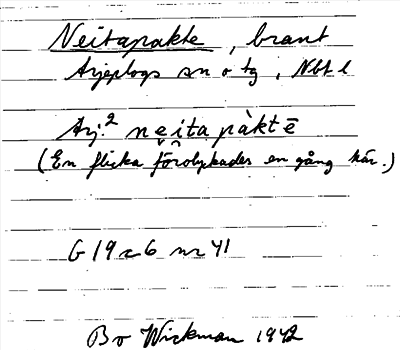 Neitapakte, brant
Arjeplogs sn o tg, Nbt l
Arj.² nei̯ta pàktē
(En flicka förolyckades en gång här.)
G 19 c 6 nr 41
Bo Wickman 1942